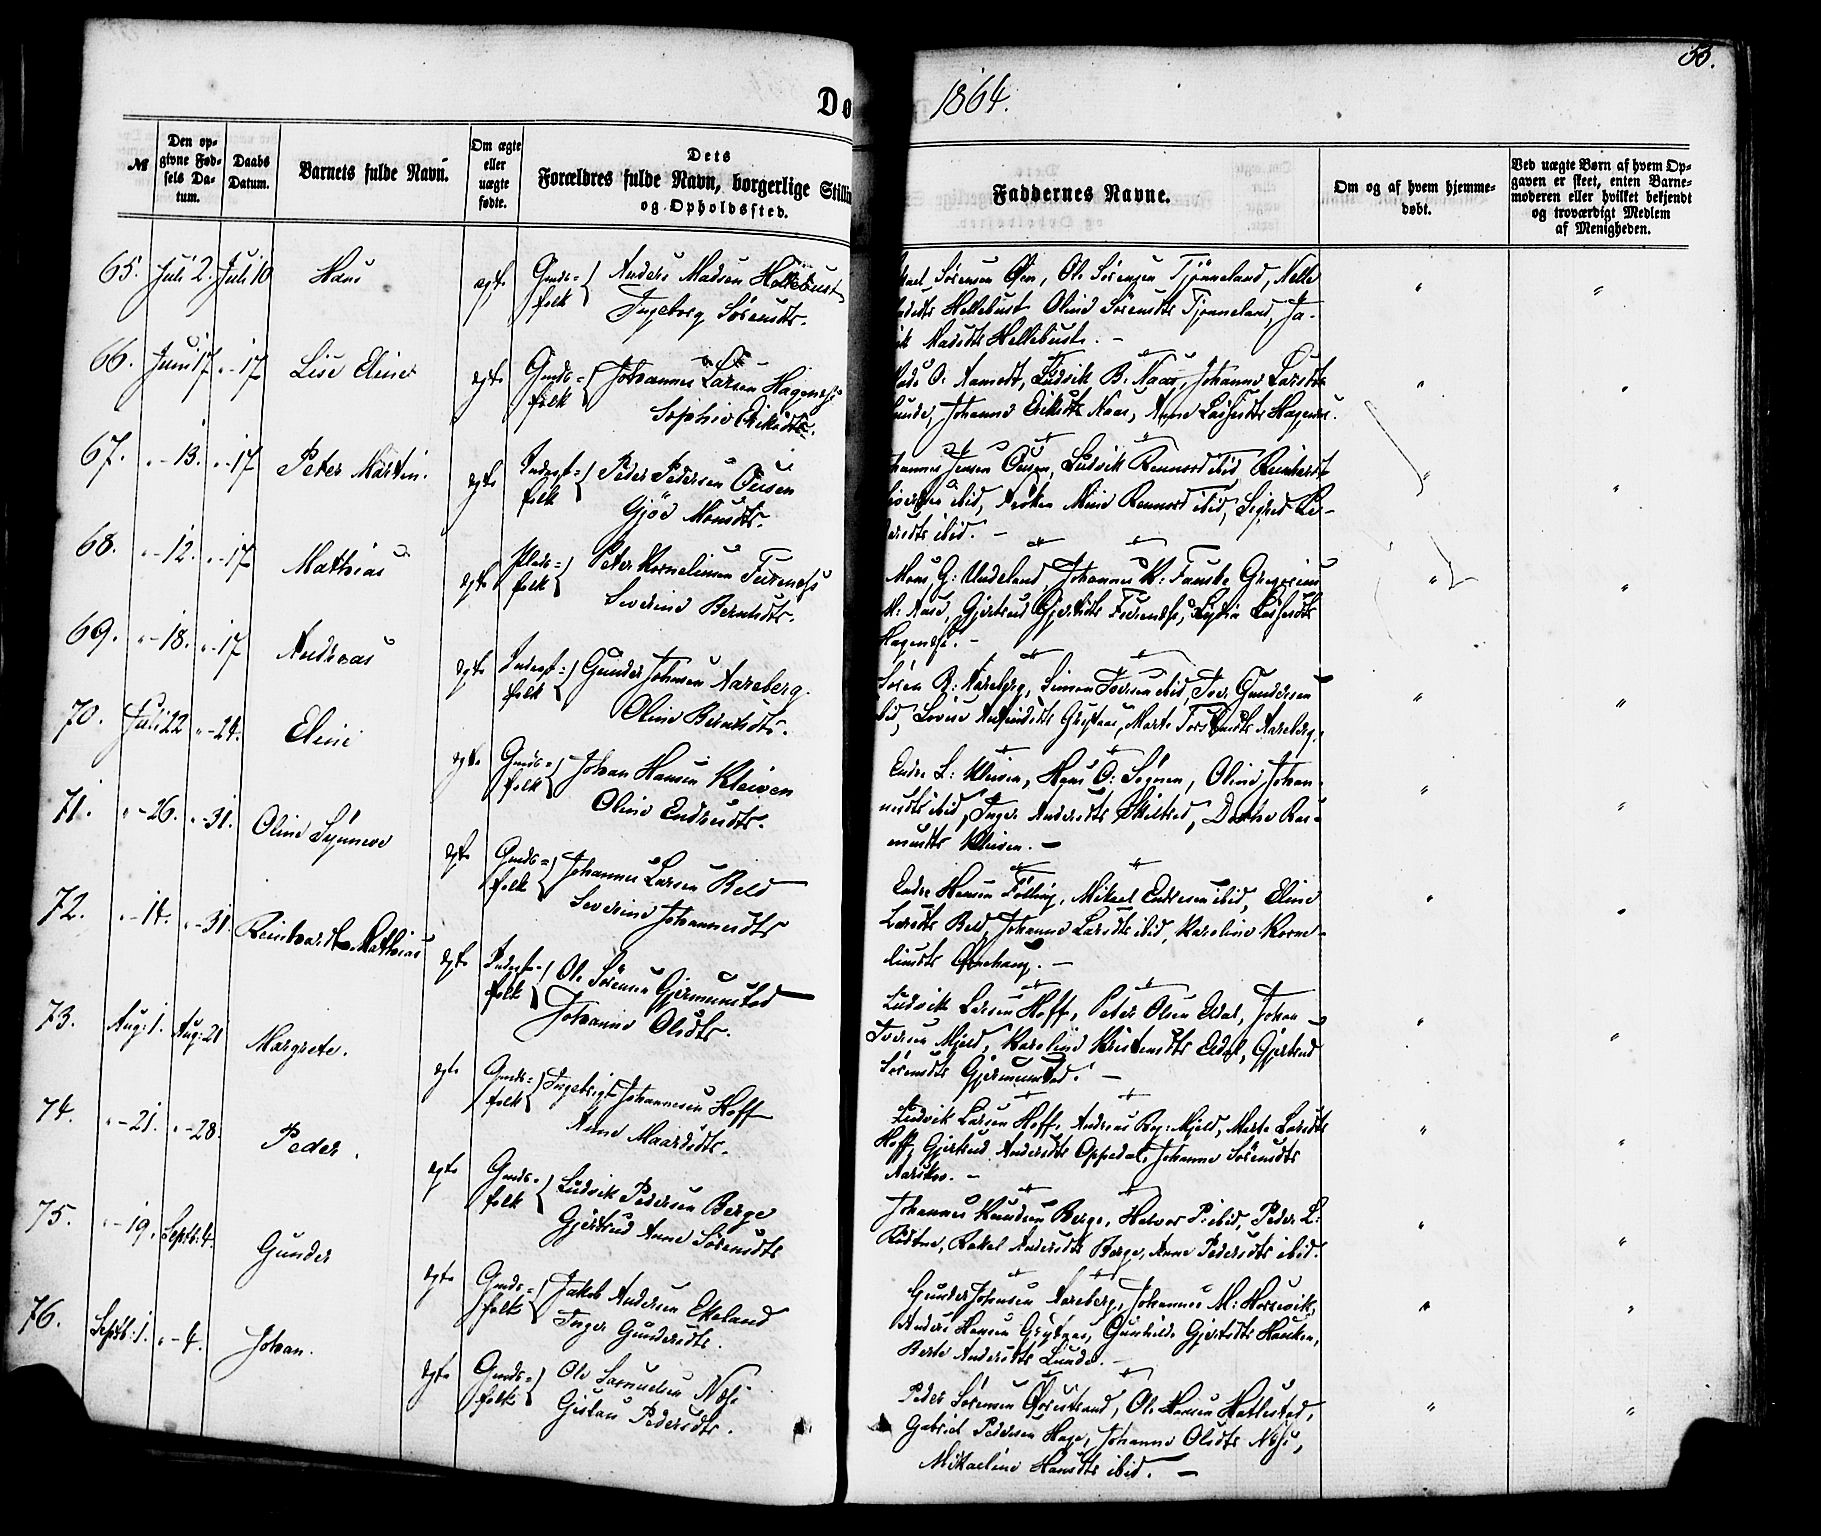 Dø
1864.
53.
№
Den opgivne Fødsels Datum.
Daabs Datum.
Barnets fulde Navn.
Om ægte eller uægte fødte.
Dets
Forældres fulde Navn, borgerlige Stilli
og Opholdssted.
Faddernes Navne.
Om og af hvem hjemmedøbt.
Ved uægte Børn af hvem Opgaven er skeet, enten Barnemoderen eller hvilket bekjendt og troværdigt Medlem af Menigheden.
65. Juli 2. Juli 10 Hans ægte Gmds= folk { Anders Madsen Hellebust
Ingeborg Sørensdtr.
Sørensen Øen, Ole Sørensen Tjønneland, Nelle
Hellebust Oline Sørensdtr Tjønneland, Ja-
Madsdtr Hellebust. —
66. Juni 17 "-17 Lise Eline ægte Gmds= folk { Johannes Larsen Hagenæs
Sophie Eriksdtr.
O: Aamodt, Ludvik B: Naas, Johanne Larsdtr
Lunde, Johanne Eriksdtr Naas, Anne Hagenæs.
67. "-13. "-17 Peter Martin. ægte Inderst= folk { Peder Pedersen Ousen
Gjøe Monsdtr.
Jensen Ousen, Ludvik Rennord ibid, Reinhardt
ibid, Frøken Mine Rennord ibid, Sigrid Pe-
dersdtr ibid. —
68. "-12. "-17 Mathias ægte Plads= folk { Peter Kornelius Furenæs
Severine Berntsdtr.
Mons G: Undeland, Johannes K: Fauske Gregorius
Gjertrud Gjertsdtr Furenæs, Lydia
Hagenæs. —
69. "-18. "-17 Andreas ægte Inderst= folk { Gunder Johnsen Aareberg.
Oline Berntsdtr.
Søren R: Aareberg, Simon Iversen ibid, Iver Gundersen
ibid, Lovise Grytnæs, Marte Torstensdtr Aareberg.
70. Juli 22 "-24. Eline ægte Gmds= folk { Johan Hansen Kleiven
Oline Endresdtr.
Endre L: Kleiven, Hans O: Sognen, Oline Johan-
nesdtr ibid, Inger Andersdtr Skilbred, Dorthe Ras-
musdtr Kleiven. —
71. "-26. "-31. Oline Synneve ægte Gmds= folk { Johannes Larsen Beld
Severine Johannesdtr
Endre Hansen Følling, Mikael Endresen ibid, Eline
Larsdtr Beld, Johanne Larsdtr ibid, Karoline Korne-
liusdtr Ørnehaug. —
72. "-14. "-31. Reinhardt Mathias ægte Inderst= folk { Ole Sørensen Gjermunstad
Johanne Olsdtr.
Ludvik Larsen Hoff, Peter Olsen Eldal, Johan
Iversen Mjeld, Karoline Kristensdtr Eldal, Gjertrud
Sørensdtr Gjermunstad. —
73. Aug: 1. Aug: 21 Margrete. ægte Gmds= folk { Ingebrigt Johannesen Hoff
Anne Maardsdtr.
Ludvik Larsen Hoff, Andreas Mjeld, Marte Larsdtr
Hoff, Gjertrud Andersdtr Oppedal, Johanne Sørensdtr
Aarskov. —
74. "-21. "-28. Peder. ægte Gmds= folk { Ludvik Pedersen Berge
Gjertrud Anne Sørensdtr
Johannes Knudsen Berge, Halvor P: ibid, Peder L:
Rakel Andersdtr Berge, Anne Pedersdtr ibid.
75. "-19. Septb: 4. Gunder ægte Gmds= folk { Jakob Andersen Ekeland
Inger Gundersdtr.
Gunder Johnsen Aareberg, Johannes M: Horsevik,
Anders Hansen Grytnæs, Gunhilde Gjertsdtr Hauken,
Berte Andersdtr Lunde. —
76. Septb: 1. "-4. Johan. ægte Gmds= folk { Ole Samuelsen Næss
Gistau Pedersdtr.
Peder Sørensen Ørestrand, Ole Hansen Hatlestad,
Gabriel Pedersen Hage, Johanne Olsdtr Næss,
Mikaeline Hansdtr ibid. —